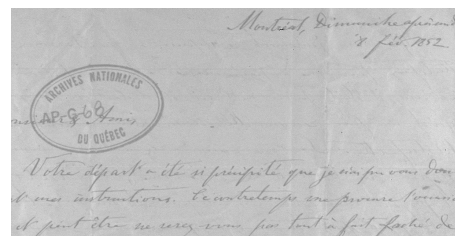 Montréal, Dimanche après mid
8 fév. 1852
ARCHIVES NATIONALES
AP-G 68
DU QUÉBEC
Amis
Votre départ a été si précipité que je n'ai pu vous don
mes instructions. Ce contretemps me procure
et peut être ne serez vous pas tout à fait fâché de